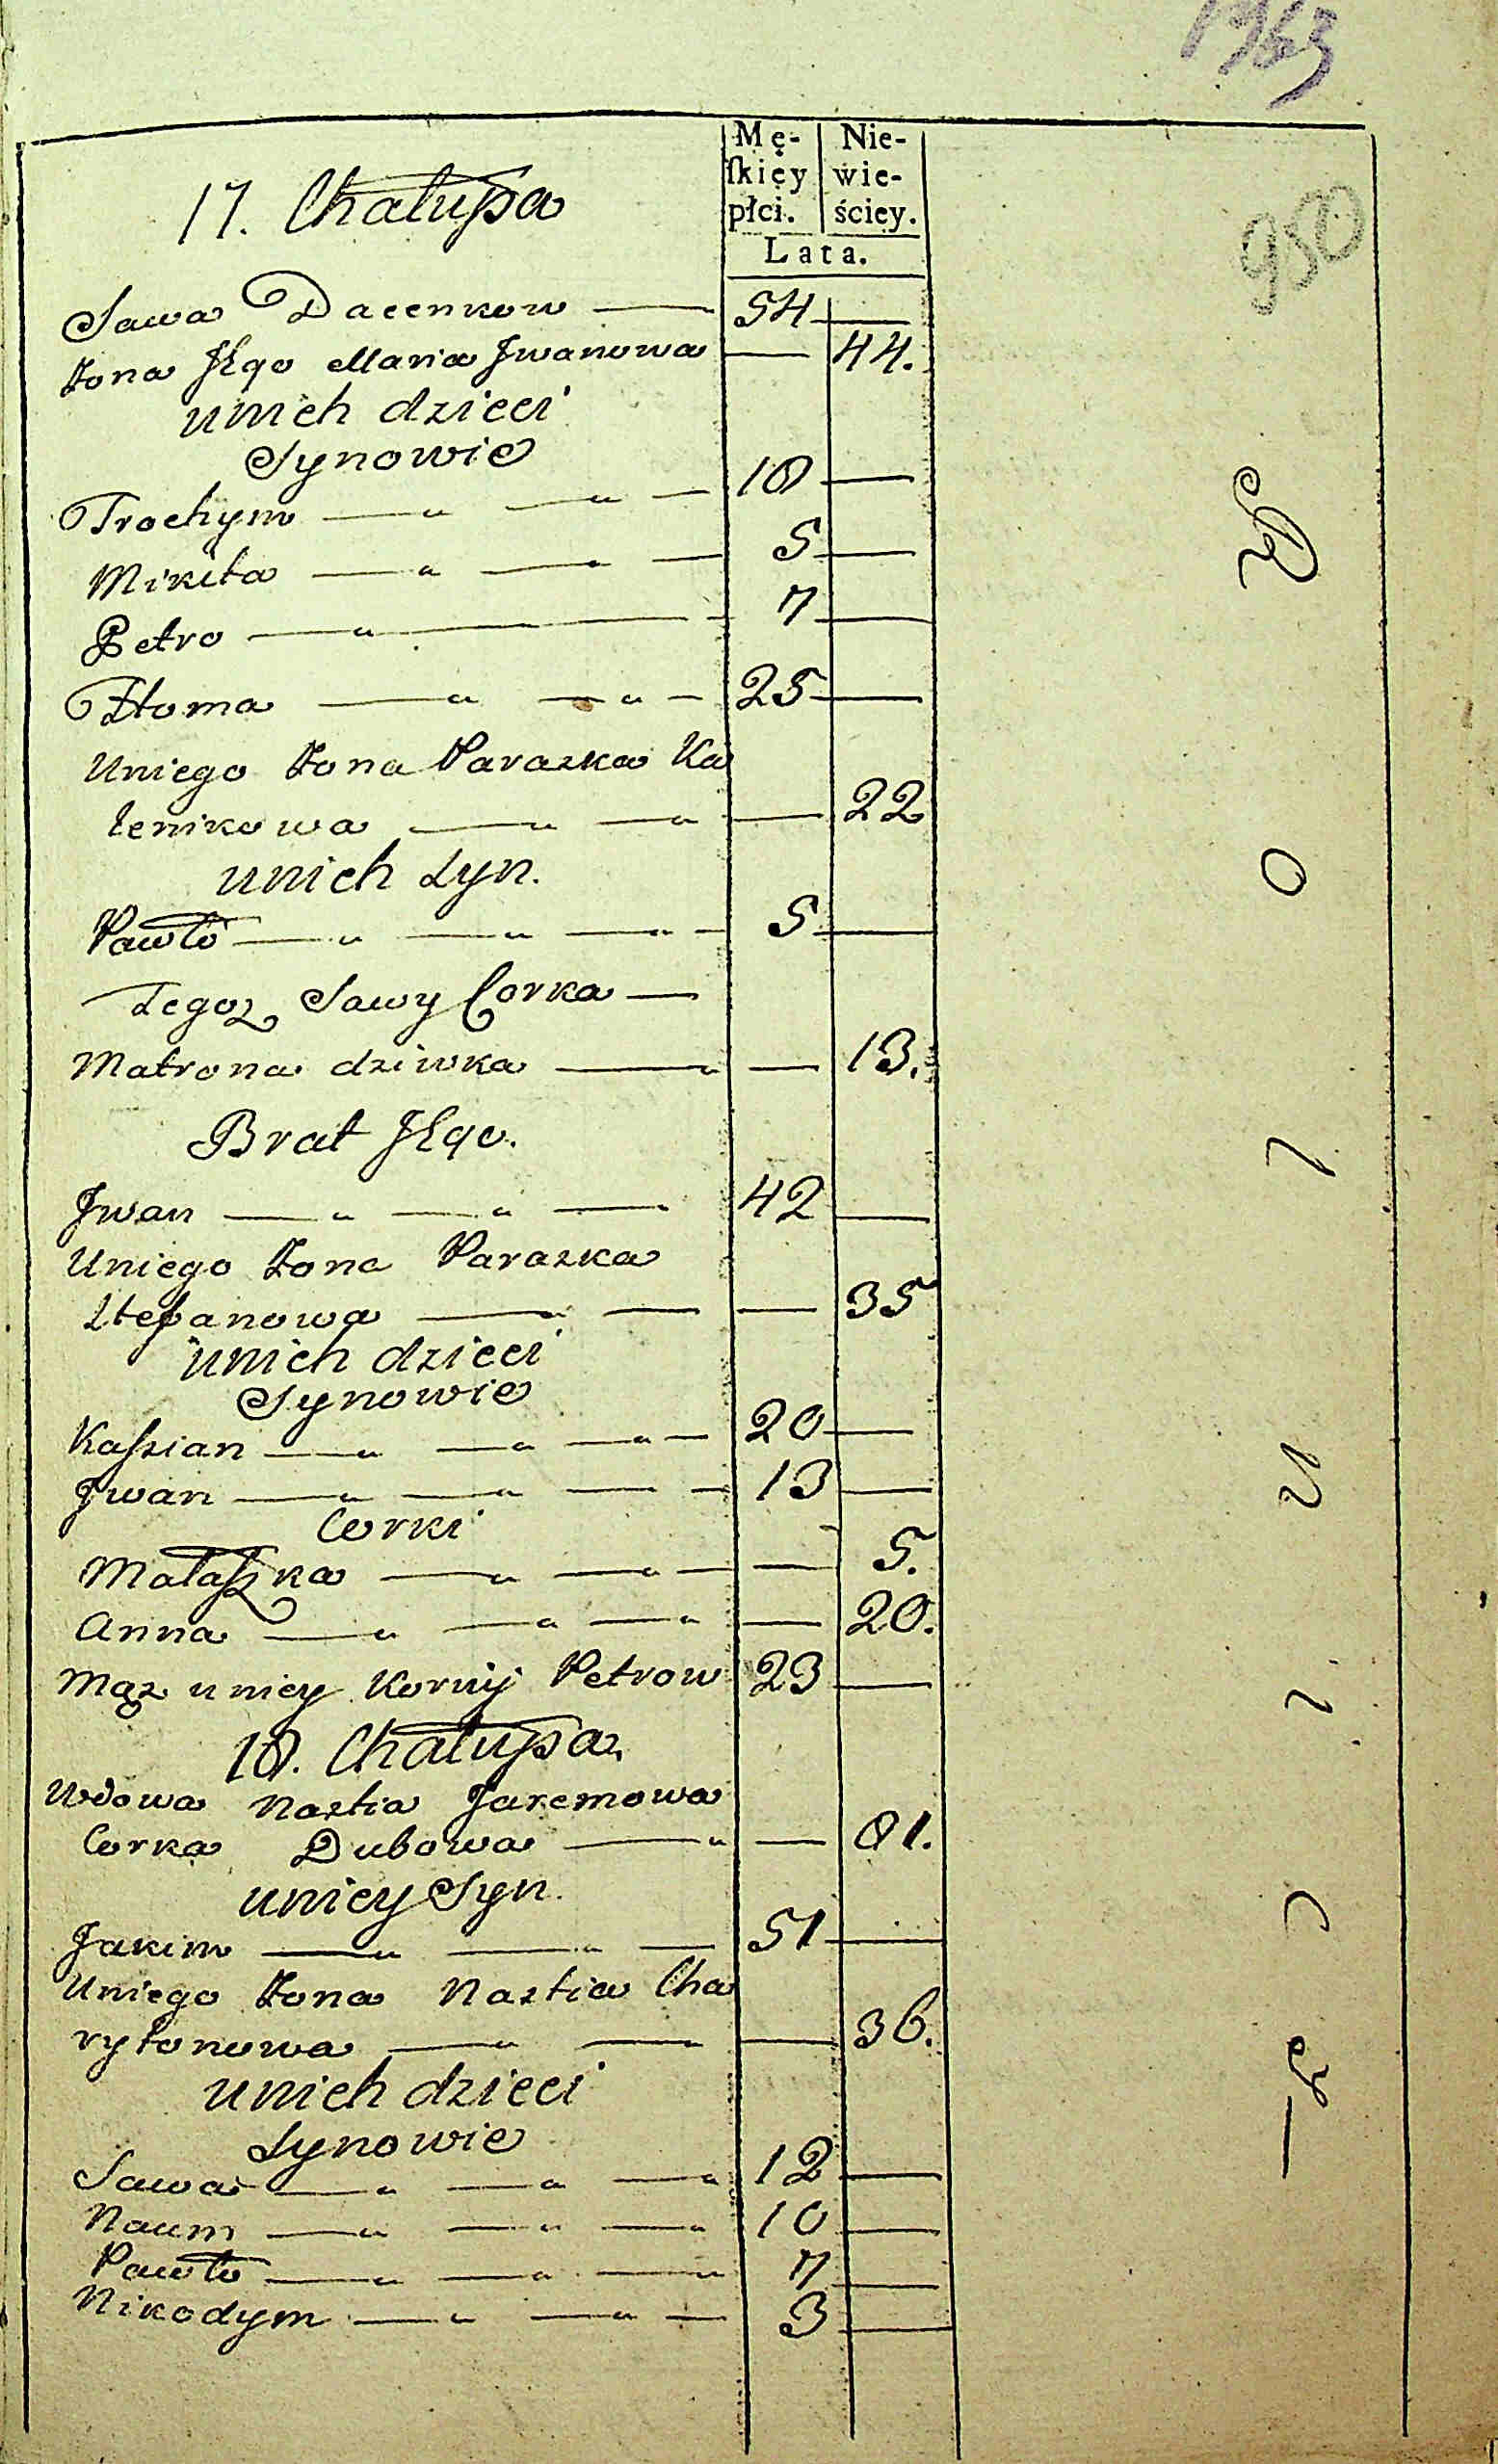 1963
Mę- Nie-
ſkiey wie-
płci. ściey.
Lata.
950
17. Chałupa
Sawa Dacenkow — 54 —
Żona Jego Maria Jwanowa — 44.
unich dzieci
Synowie
Trochym — " — " — 18 —
Mikita — " — " — 5 —
Petro — " — 7 —
Thoma — " — " — 25 —
Uniego Żona Paraska Ka
lenikowa — " — " — 22
unich Syn.
Pawło — " — " — " — 5 —
Tegoż Sawy Corka —
Matrona dziwka — " — 13.
Brat Jego.
Jwan — " — " — 42 —
Uniego Żona Paraska
Stefanowa — " — — 35
unich dzieci
Synowie
Kaſsian — " — " — " — 20 —
Jwan — " — " — — 13 —
Corki
Małaszka — " — " — — 5.
Anna — " — " — " — 20.
Mąż u niey Korniy Petrow 23 —
18. Chałupa
Wdowa Nastia Jaremowa
Corka Dubowa — " — 81.
uniey Syn.
Jakim — " — " — 51 —
Uniego Żona Nastia Cha
rytonowa — " — " — 36.
unich dzieci
Synowie
Sawa — " — " — " 12 —
Naum — " — " — " 10 —
Pawło — " — " — " 7 —
Nikodym — " — " — 3 —